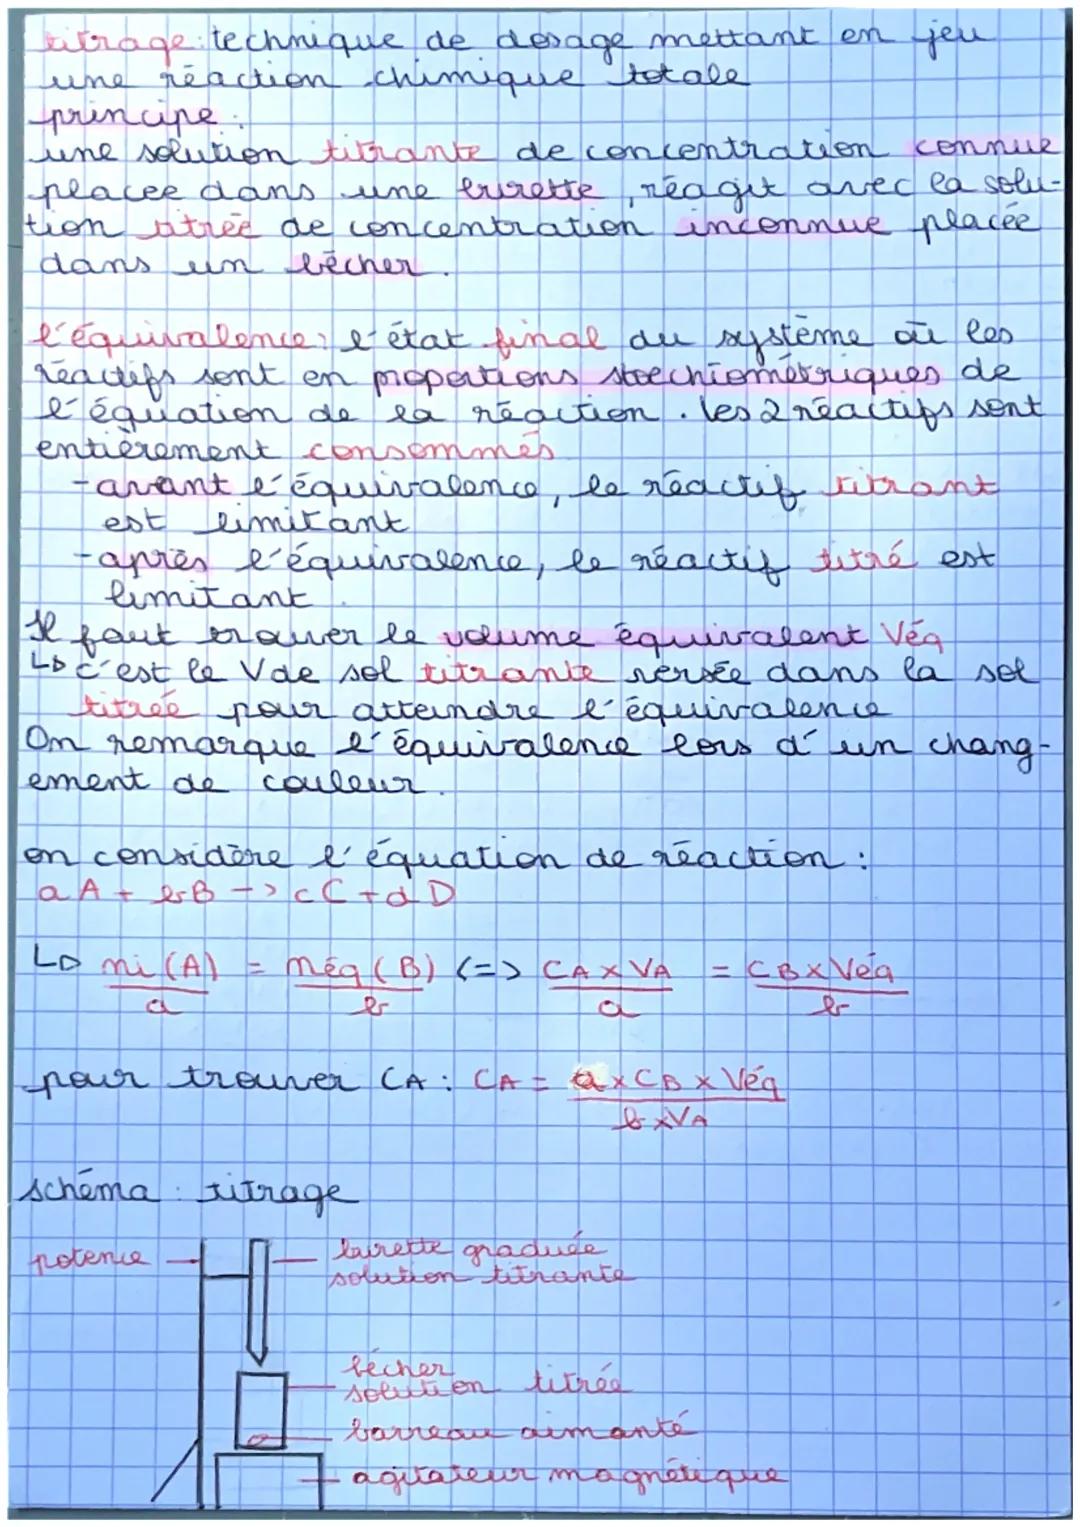 titrage: technique de dosage mettant en jeu
une réaction chimique totale
principe:
une solution titrante de concentration connue
placée dans une burette, réagit avec la solu-
tion titrée de concentration inconnue placée
dans un bécher.
l'équivalence: l'état final du système où les
réactifs sont en proportions stoechiométriques de
l'équation de la réaction. les 2 réactifs sont
entièrement consommés
-avant l'équivalence, le réactif titrant
est limitant
-après l'équivalence, le réactif titré est
limitant.
Il faut trouver le volume équivalent Véq
↳ c'est le V de sol titrante versée dans la sol
titrée pour atteindre l'équivalence
On remarque l'équivalence lors d'un chang-
ement de couleur.
on considère l'équation de réaction:
aA + bB -> cC + dD
↳ ni(A)/a = néq(B)/b <=> CA×VA/a = CB×Véq/b
pour trouver CA: CA = a×CB×Véq/b×VA
schéma: titrage
potence
burette graduée
solution titrante
bécher
solution titrée
barreau aimanté
agitateur magnétique